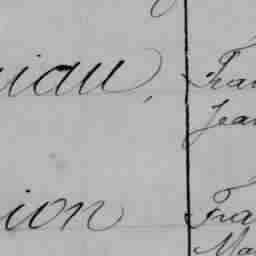 iau,
Fran
Jean
ion
Fra
Ma